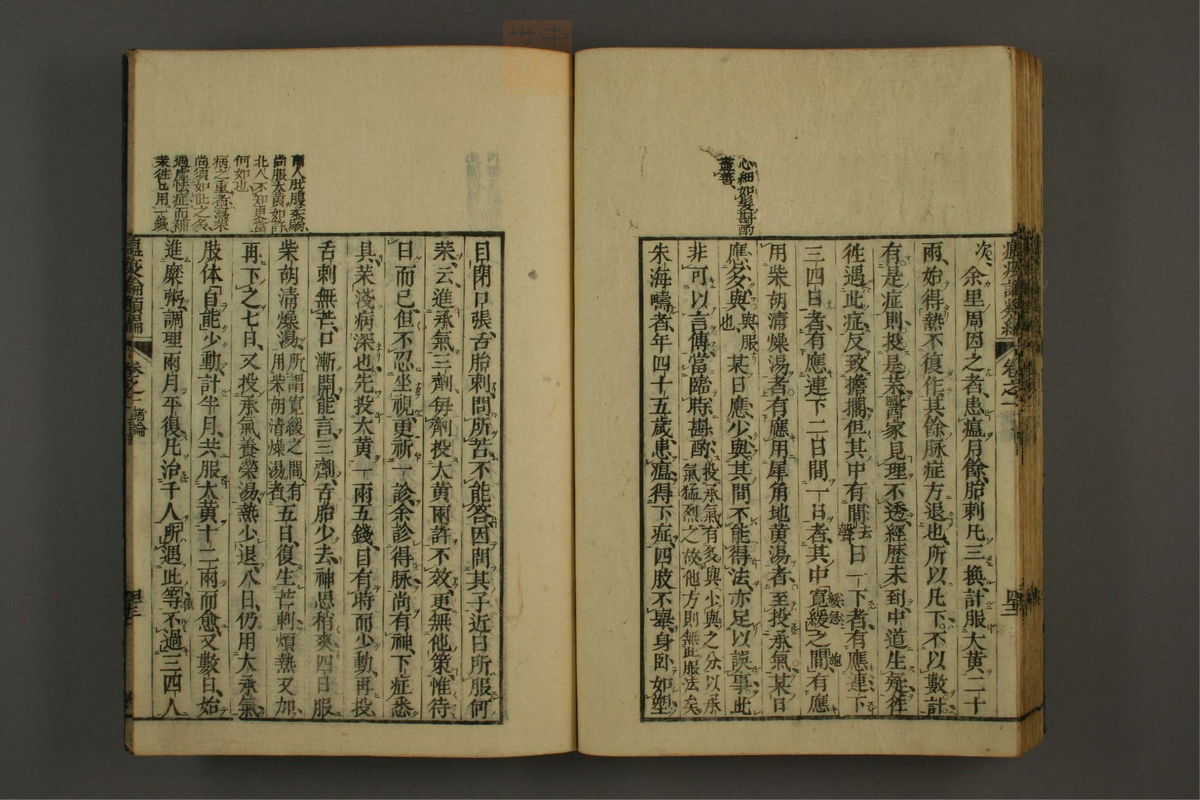 心細如髮斟酌
盡善
次余里周因之者患瘟月餘胎刺凡三換計服大黃二十
兩始得熱不復作其餘脉症方退也所以凡下不以數計
有是症則投是藥醫家見理不透經歷未到中道生疑往
徃遇此症反致擔擱但其中有間去聲日一下者有應連下
三四日者有應連下二日間一日者其中寬緩之間有應
用柴胡清燥湯者有應用犀角地黃湯者至投承氣某日
應多與與服也某日應少與其間不能得法亦足以誤事此
非可以言傳當臨時斟酌投承氣有多與少與之分以承氣猛烈之故他方則無此服法矣
朱海疇者年四十五歲患瘟得下症四肢不舉身臥如塑
南人肚腸柔弱
尚服大黃如許
北人不知更當
何如也
病之重者湯藥
尚須如此之多
遇虛怯症而補
目閉口張舌胎刺問所苦不能答因問其子近日所服何
藥云進承氣三劑每劑投大黃兩許不效更無他策惟待
日而已但不忍坐視更祈一診余診得脉尚有神下症悉
具藥淺病深也先投大黃一兩五錢目有時而少動再投
舌刺無芒口漸開能言三劑舌胎少去神思稍爽四日服
柴胡清燥湯所謂寬緩之間有用柴胡清燥湯者五日復生芒刺煩熱又加
再下之七日又投承氣養榮湯熱少退八日仍用大承氣
肢体自能少動計半月共服大黃十二兩而愈又數日始
進糜粥調理兩月平復凡治千人所遇此等不過三四人
瘟疫論類編
卷之二 諸論